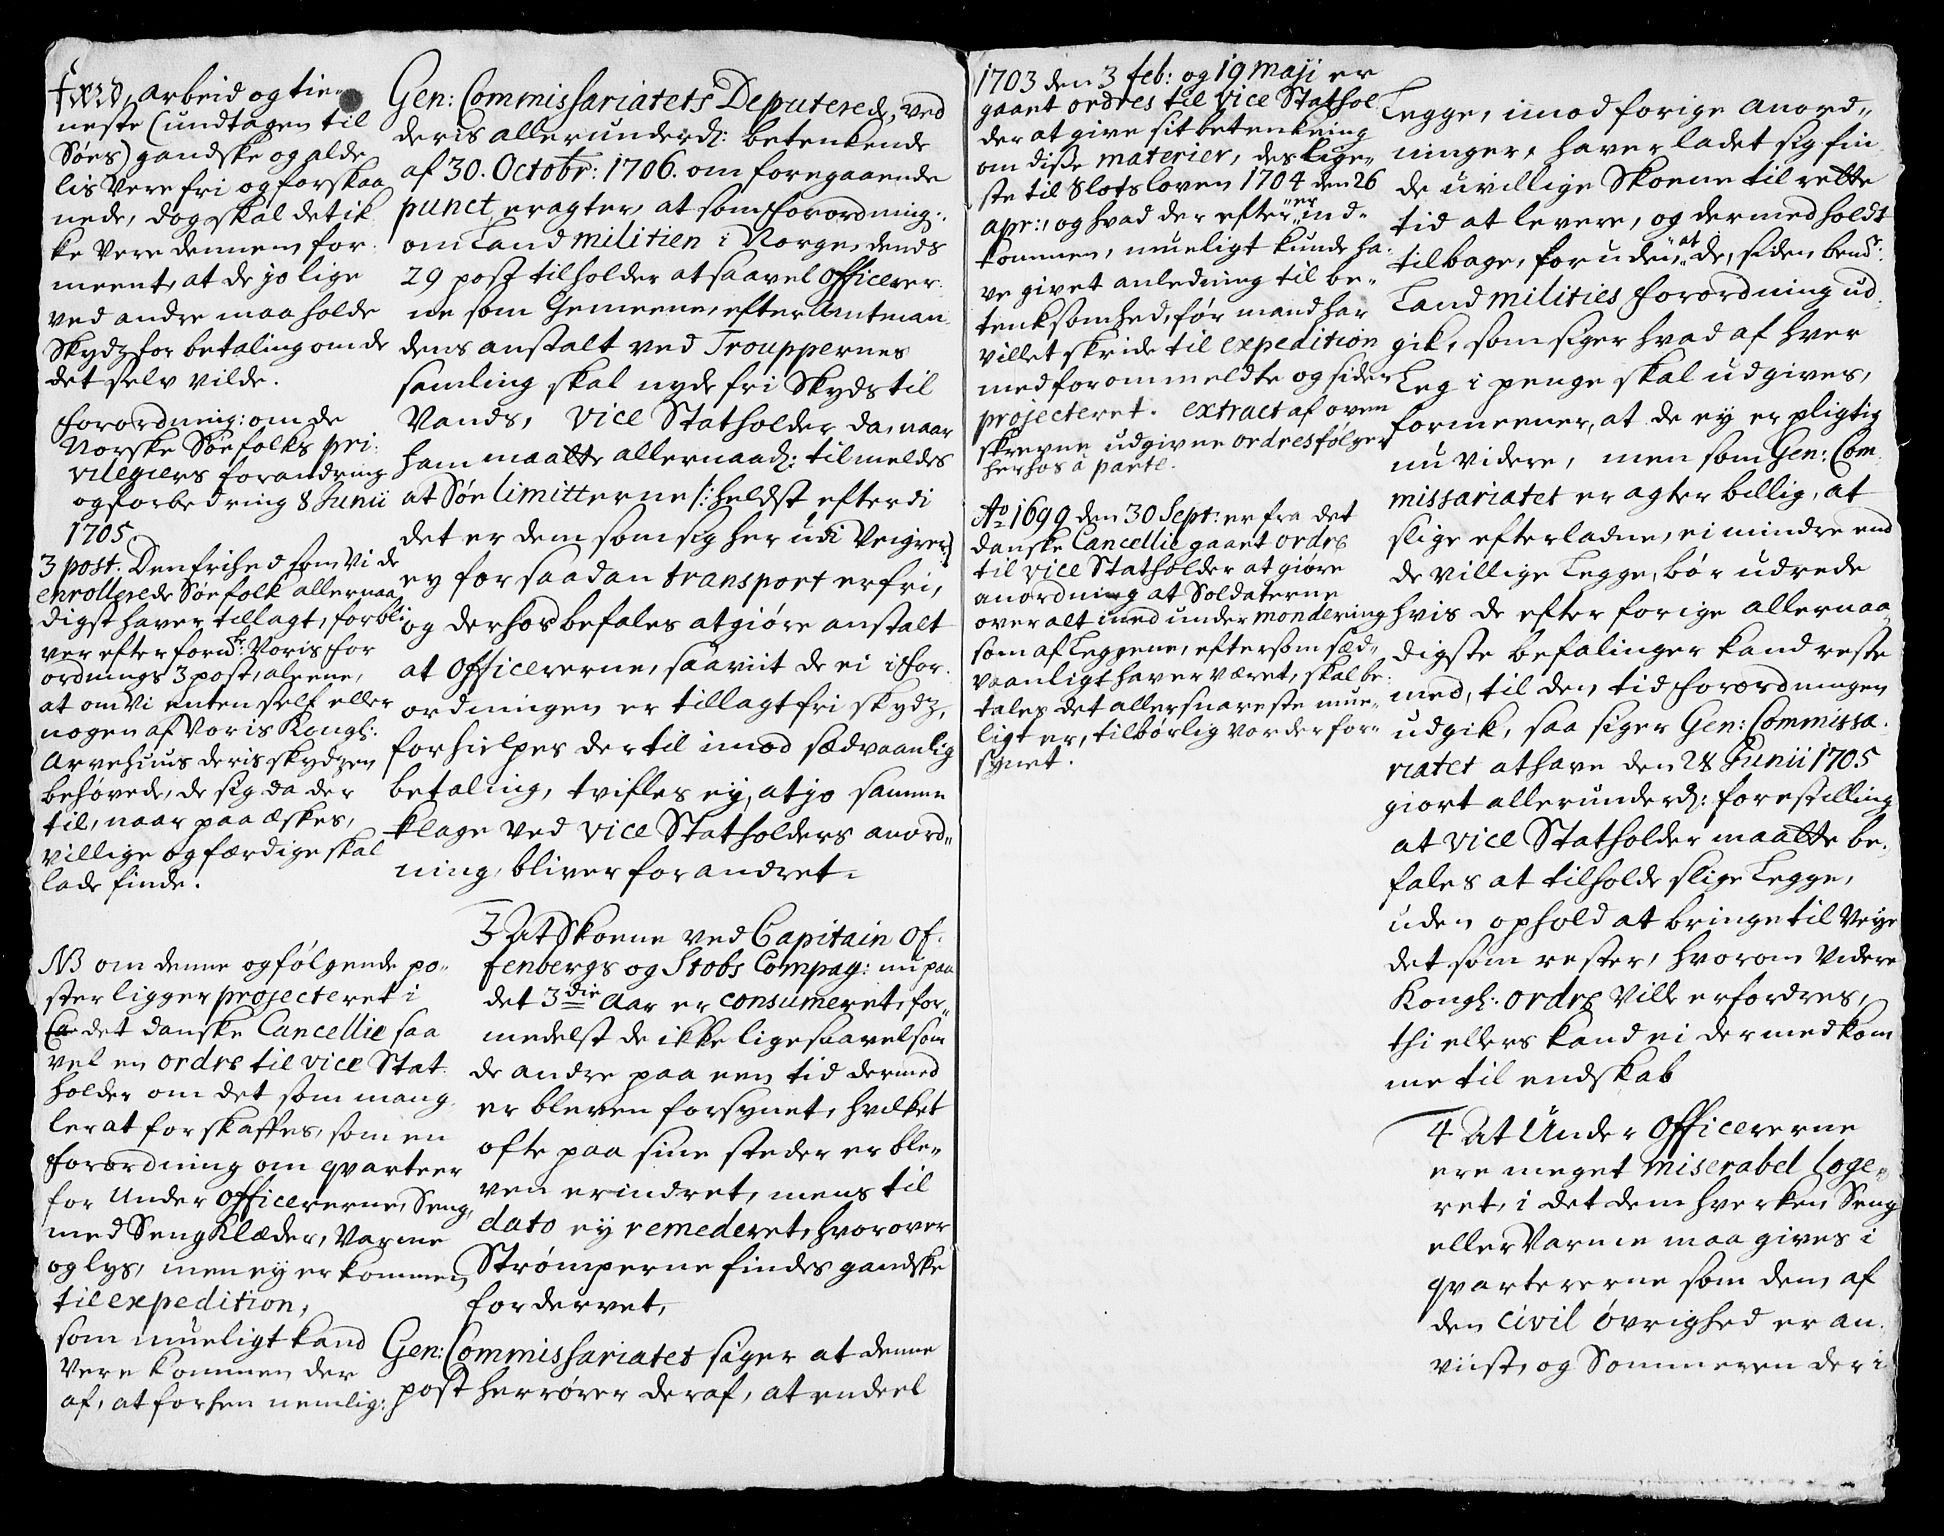 færd, arbeid og tie-
neste (undtagen til
Søes) gandske og alde
lis Vere fri og forskaa
nede, dog skal det ik
ke Vere dennem for
meent, at de jo lige
ved andre maa holde
Skydz for betaling om de
det selv vilde.
forordning: om de
Norske Søefolks pri
vilegiers forandring
og forbedring 8 Junii
1705.
3 post. Den frihed som Vi de
enrollerede Søefolk allernaa
digst haver tillagt, forbli
ver efter forndr: Voris for
ordnings 3 post, aleene,
at om Vi enten self eller
nogen af Voris Kongl:
Arvehuus deris skydzen
behøvede, de sig da der
til, naar paa æskes,
villige og færdige skal
lade finde.
NB om denne og følgende po-
ster ligger projecteret i
det danske Cancellie saa
vel en ordre til vice Stat
holder om det som mang
ler at forskaffes, som en
forordning om qvarteer
for Under Officererne, Seng,
med Sengklæder, Varme
og lys, men ey er kommen
til expedition,
som mueligt kand
Vere kommen der
af, at forhen nemlig:
Gen: Commissariatets Deputerede, ved
deris allerunderd: betenkende
af 30. Octobr: 1706. om foregaaende
punct eragter, at som forordning:
om Land militien i Norge, dends
29 post tilholder at saavel Officerer
ne som Gemeene, efter Amtman
dens anstalt ved Trouppernes
samling skal nyde fri Skyds til
Vands, Vice Statholder da, naar
ham maatte allernaad: tilmeldes
at Søe limitterne /: heldst efterdi
det er dem som sig her udi Veigrer)
ey for saadan transport er fri,
og derhos befales at giøre anstalt
at Officererne, saaviit de ei i for
ordningen er tillagt fri skydz,
forhielpes dertil imod sædvaanlig
betaling, tvifles ey, at jo samme
klage ved Vice Statholders anord-
ning, bliver forandret.
3 At Skoene ved Capitain Of-
fenbergs og Stobs Compag: nu paa
det 3die Aar er consumeret, for-
medelst de ikke lige saavel som
de andre paa een tid dermed
er bleven forsynet, hvilket
ofte paa sine steder er ble-
ven erindret, mens til
dato ey remederet, hvorover
Strømperne findes gandske
fordervet,
Gen: Commissariatet siger at denne
post herrører deraf, at endeel
1703 den 3 feb: og 19 Maji er
gaaet ordres til Vice Stathol
der at give sit betenkning
om disse materier, deslige-
ste til Slotsloven 1704 den 26
apr:, og hvad der efter er ind-
kommen, mueligt kunde ha-
ve givet anledning til be-
tenksomhed, før mand har
villet skride til expedition
med forommeldte og siden
projecteret. extract af oven
skrevne udgivne ordres følger
herhos à parte.
Ao 1699 den 30 Sept: er fra det
danske Cancellie gaaet ordre
til vice Statholder at giøre
anordning at Soldaterne
over alt med under mondering
som af Leggene, eftersom sæd-
vaanligt haver været, skal be-
tales det allersnareste mue-
ligt er, tilbørlig vorder for-
synet.
Legge, imod forige anord-
ninger, haver ladet sig fin
de uvillige Skoene til rette
tid at levere, og dermed holdt
tilbage, foruden at de, siden bemdr:
Land milities forordning ud
gik, som siger hvad af hver
Leg i penge skal udgives,
formeener, at de ey er pligtig
nu videre, men som Gen: Com
missariatet eragter billig, at
slige efterladne, ei mindre end
de villige Legge, bør udrede
hvis de efter forige allernaa
digste befalinger kand reste
med, til den tid forordningen
udgik, saa siger Gen: Commissa
riatet at have den 28 Junii 1705
giort allerunderd: forestilling
at vice Statholder maatte be-
fales at tilholde slige Legge,
uden ophold at bringe til Veye
det som rester, hvorom Videre
Kongl: ordre Ville erfordres,
thi ellers kand ei dermed kom
me til endskab
4 At Under Officererne
ere meget miserabel loge-
ret, i det dem hverken Seng
eller Varme maa gives i
qvartererne som dem af
den civil øvrighed er an
viist, og Sommeren der i